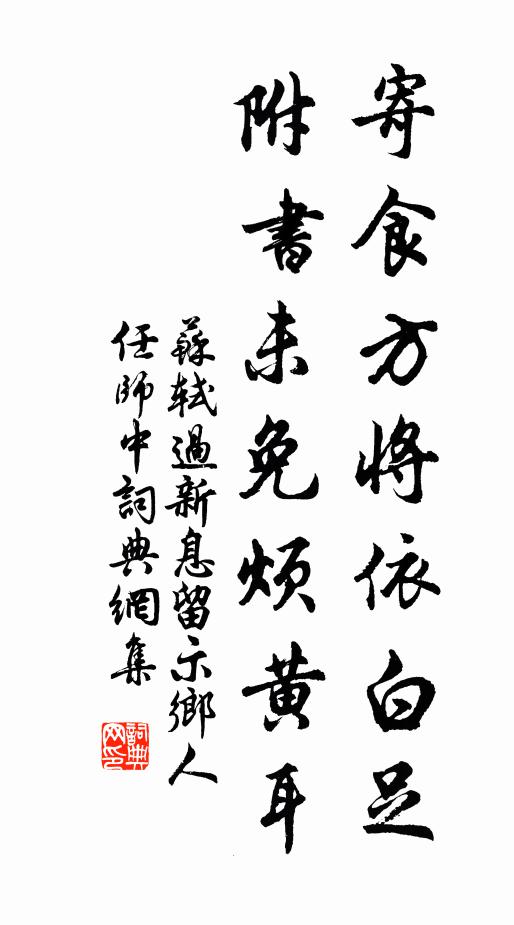 寄食方將依白足
附書未免煩黃耳
蘇軾過新息留示鄉人
任師中詞典網集
詞典
网印